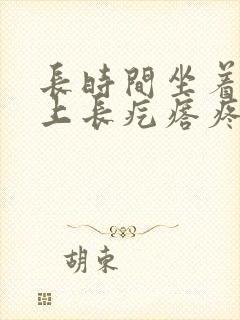 長時間坐着
上長疙瘩疼
胡束